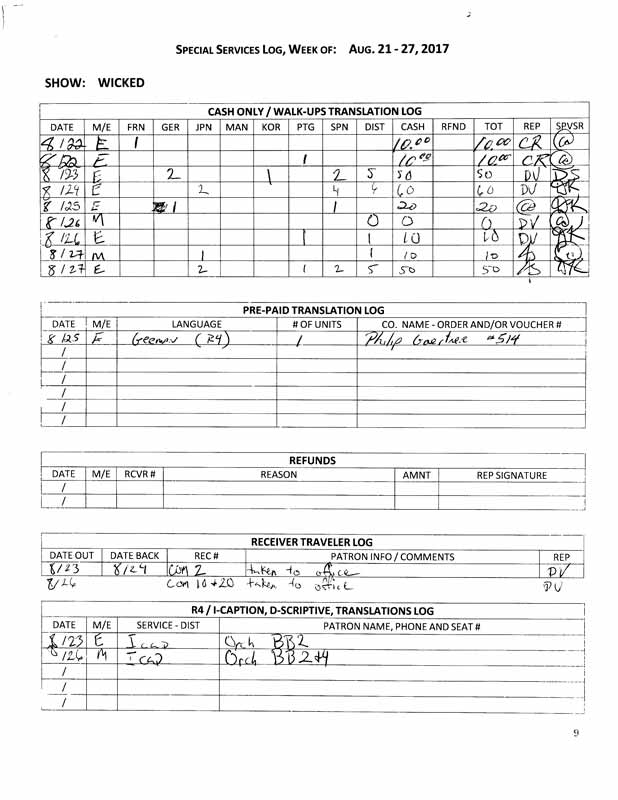 SPECIAL SERVICES LOG, WEEK OF: AUG. 21 - 27, 2017
SHOW: WICKED
CASH ONLY / WALK-UPS TRANSLATION LOG
DATE M/E FRN GER JPN MAN KOR PTG SPN DIST CASH RFND TOT REP SPVSR
8/22 E 1 10.00 10.00 CR
8/22 E 1 10.00 10.00 CR
8/23 E 2 1 2 5 50 50 DV DS
8/24 E 2 4 6 60 60 DV
8/25 E 1 1 20 20
8/26 M 0 0 0 DV
8/26 E 1 1 10 10 DV
8/27 M 1 1 10 10
8/27 E 2 1 2 5 50 50
PRE-PAID TRANSLATION LOG
DATE M/E LANGUAGE # OF UNITS CO. NAME - ORDER AND/OR VOUCHER #
8/25 E German (R4) 1 Philip #514
/
/
/
/
/
/
REFUNDS
DATE M/E RCVR # REASON AMNT REP SIGNATURE
/
/
RECEIVER TRAVELER LOG
DATE OUT DATE BACK REC # PATRON INFO / COMMENTS REP
8/23 8/24 Com 2 taken to office DV
8/26 Com 10+20 taken to office DV
R4 / I-CAPTION, D-SCRIPTIVE, TRANSLATIONS LOG
DATE M/E SERVICE - DIST PATRON NAME, PHONE AND SEAT #
8/23 E ICAP Orch BB2
8/26 M ICAP Orch BB2+4
/
/
/
9